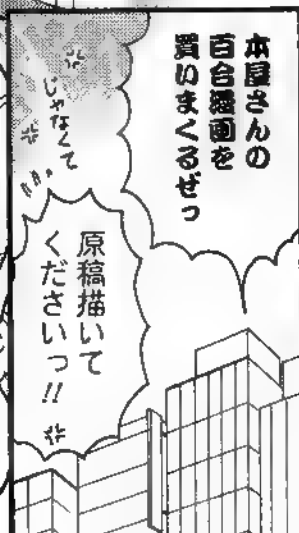 本屋さんの
百合漫画を
買いまくるぜっ
じゃなくて
原稿描いて
くださいっ!!